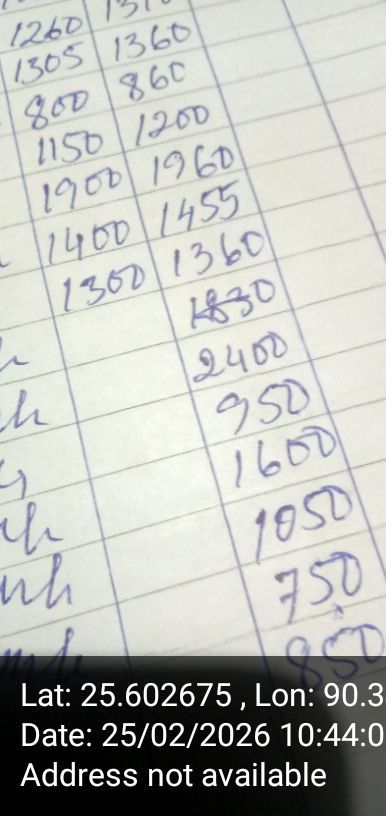 1260
1305 1360
800 860
1150 1200
1900 1960
1400 1455
1300 1360
1830
2400
950
1600
1050
750
850
Lat: 25.602675 , Lon: 90.3
Date: 25/02/2026 10:44:0
Address not available